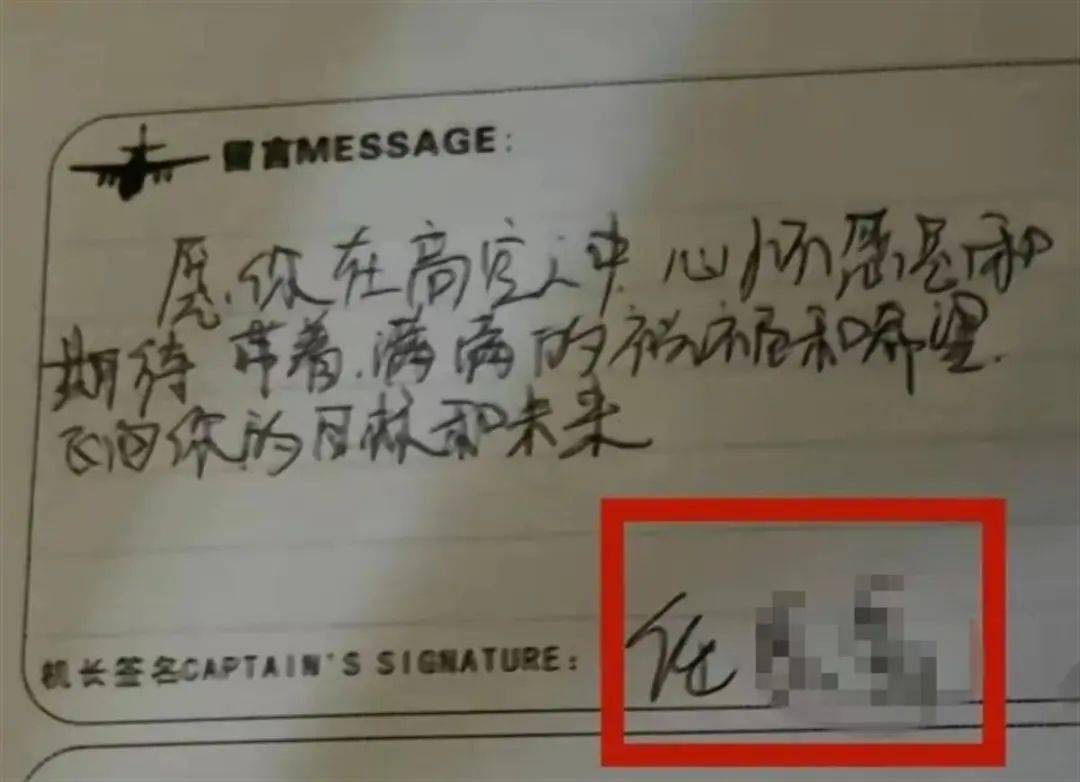 留言MESSAGE:
愿你在高空之中心怀愿景和
期待 带着满满的祝福和希望
飞向你的目标和未来
机长签名CAPTAIN'S SIGNATURE: 任